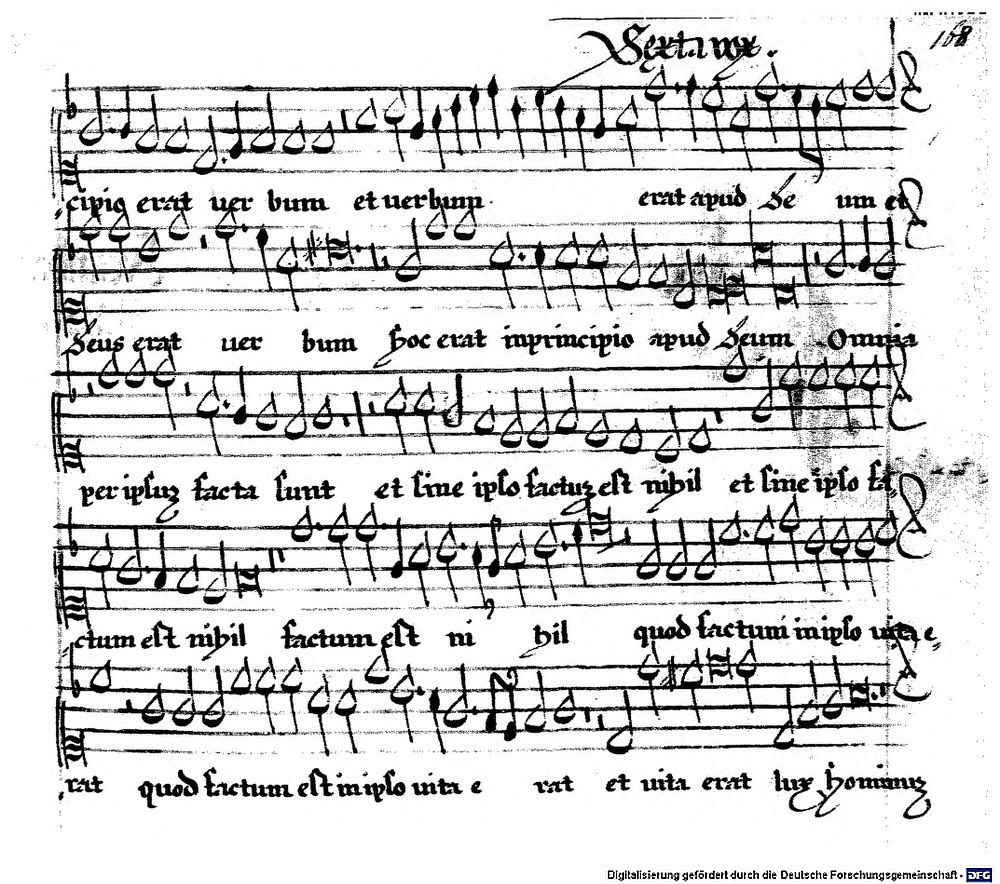 168
Sexta vox.
cipio erat uer bum et uerbum erat apud De um et
Deus erat uer bum hoc erat inprincipio apud Deum Omnia
per ipsuz facta sunt et sine ipso factuz est nihil et sine ipso fa
ctum est nihil factum est ni hil quod factum in ipso uita e
rat quod factum est in ipso uita e rat et uita erat lux hominuz
Digitalisierung gefördert durch die Deutsche Forschungsgemeinschaft - DFG